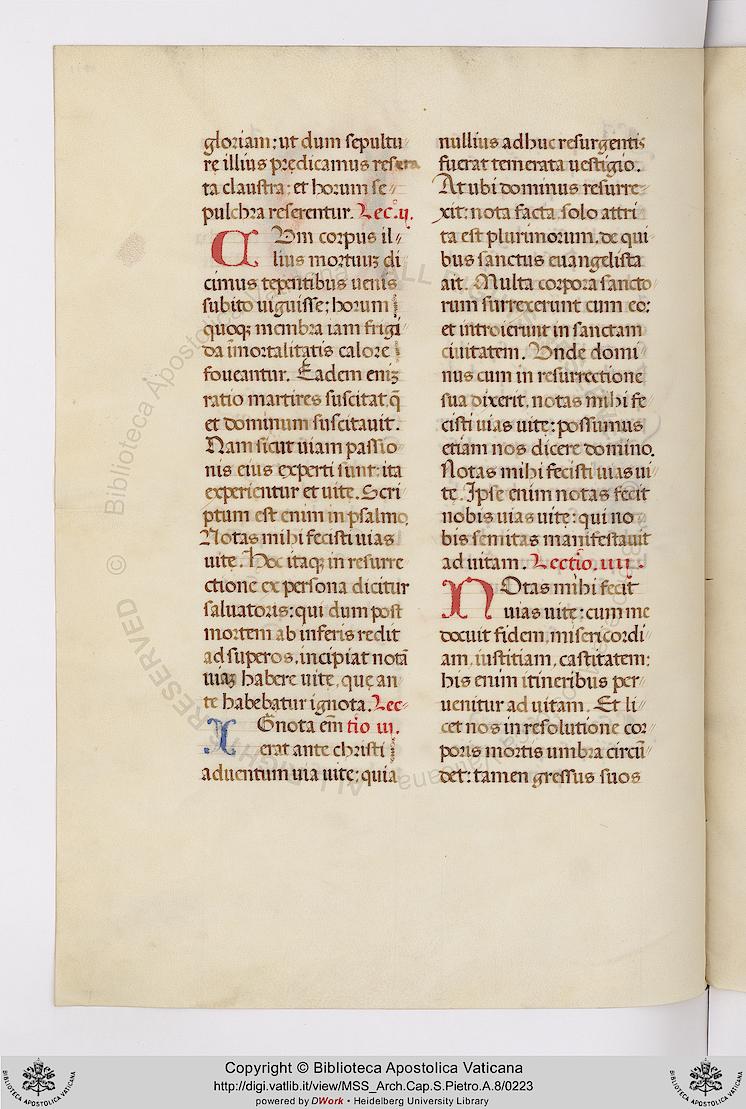 gloriam: ut dum sepultu
rę illius prędicamus resera
ta claustra: et horum se-
pulchra reserentur. Lec. ij.
CVm corpus il-
lius mortuuꝫ di
cimus tepentibus uenis
subito uiguisse: horum
quoqꝫ membra iam frigi
da īmortalitatis calore
foueantur. Eadem eniꝫ
ratio martires suscitat, q̄
et dominum suscitauit.
Nam sicut uiam passio
nis eius experti sunt: ita
experientur et uitę. Scri
ptum est enim in psalmo.
Notas mihi fecisti uias
uitę. Hoc itaqꝫ in resurre
ctione ex persona dicitur
saluatoris: qui dum post
mortem ab inferis redit
ad superos, incipiat notā
uiaꝫ habere uitę, quę an
te habebatur ignota. Lec-
IGnota em̄ tio iij.
erat ante christi
aduentum uia uitę: quia
nullius adhuc resurgentis
fuerat temerata uestigio.
At ubi dominus resurre-
xit: nota facta solo attri
ta est plurimorum. de qui
bus sanctus euangelista
ait. Multa corpora sancto
rum surrexerunt cum eo:
et introierunt in sanctam
ciuitatem. Vnde domi
nus cum in resurrectione
sua dixerit, notas mihi fe
cisti uias uitę: possumus
etiam nos dicere domino.
Notas mihi fecisti uias ui
tę. Ipse enim notas fecit
nobis uias uitę: qui no
bis semitas manifestauit
ad uitam. Lectio. iiij.
NOtas mihi fecit
uias uitę: cum me
docuit fidem, misericordi
am, iustitiam, castitatem:
his enim itineribus per
uenitur ad uitam. Et li
cet nos in resolutione cor
poris mortis umbra circū
det: tamen gressus suos
© Biblioteca Apostolica Vaticana ALL RIGHTS RESERVED
Copyright © Biblioteca Apostolica Vaticana
http://digi.vatlib.it/view/MSS_Arch.Cap.S.Pietro.A.8/0223
powered by DWork • Heidelberg University Library
BIBLIOTECA APOSTOLICA VATICANA
BIBLIOTECA APOSTOLICA VATICANA